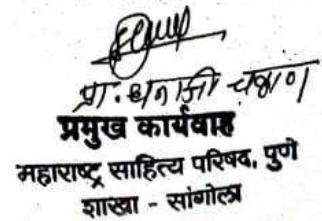 प्रा. धनाजी चव्हाण
प्रमुख कार्यवाह
महाराष्ट्र साहित्य परिषद, पुणे
शाखा - सांगोला